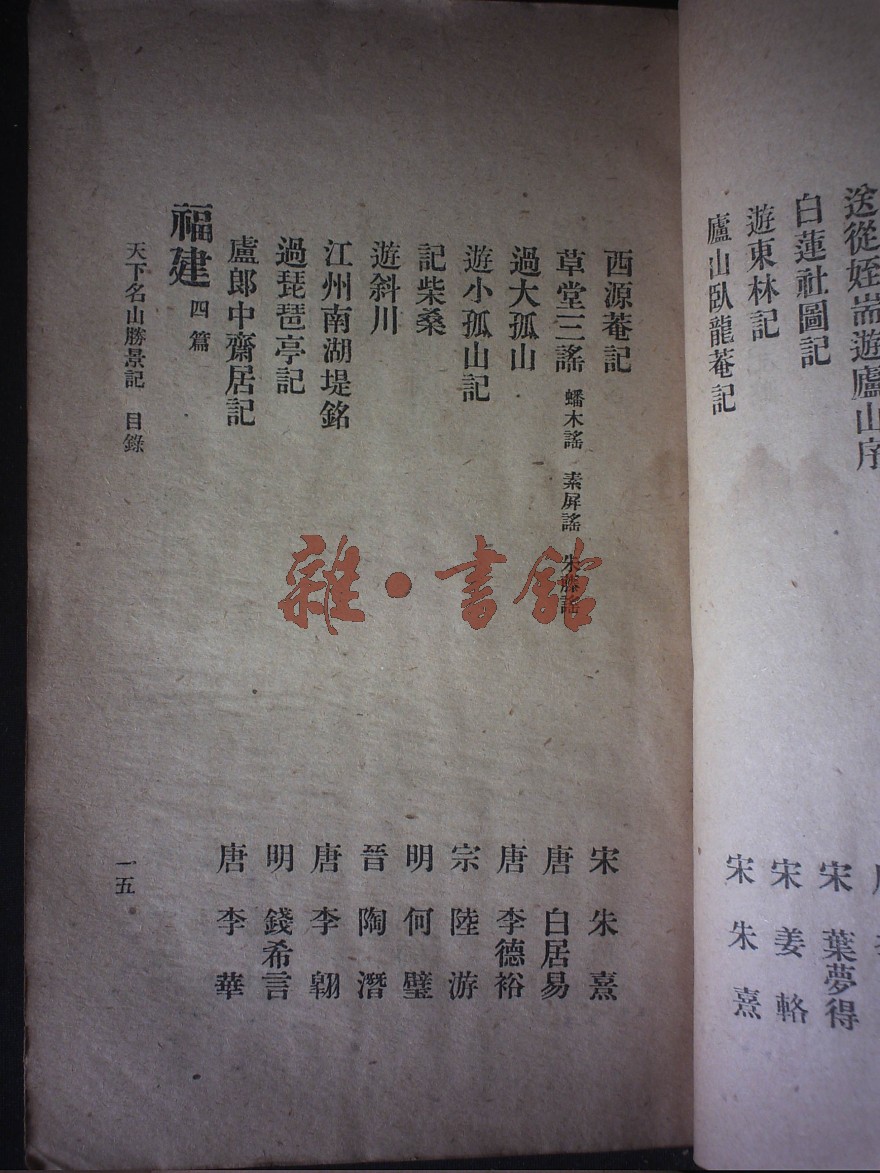 送從姪耑遊廬山序
白蓮社圖記 宋 葉夢得
遊東林記 宋 姜輅
廬山臥龍菴記 宋 朱熹
西源菴記 宋 朱熹
草堂三謠 蟠木謠 素屏謠 朱藤謠 唐 白居易
過大孤山 唐 李德裕
遊小孤山記 宗 陸游
記柴桑 明 何璧
遊斜川 晉 陶潛
江州南湖堤銘 唐 李翺
過琵琶亭記 明 錢希言
盧郎中齋居記 唐 李華
福建 四篇
天下名山勝景記 目錄 一五
雜·書館